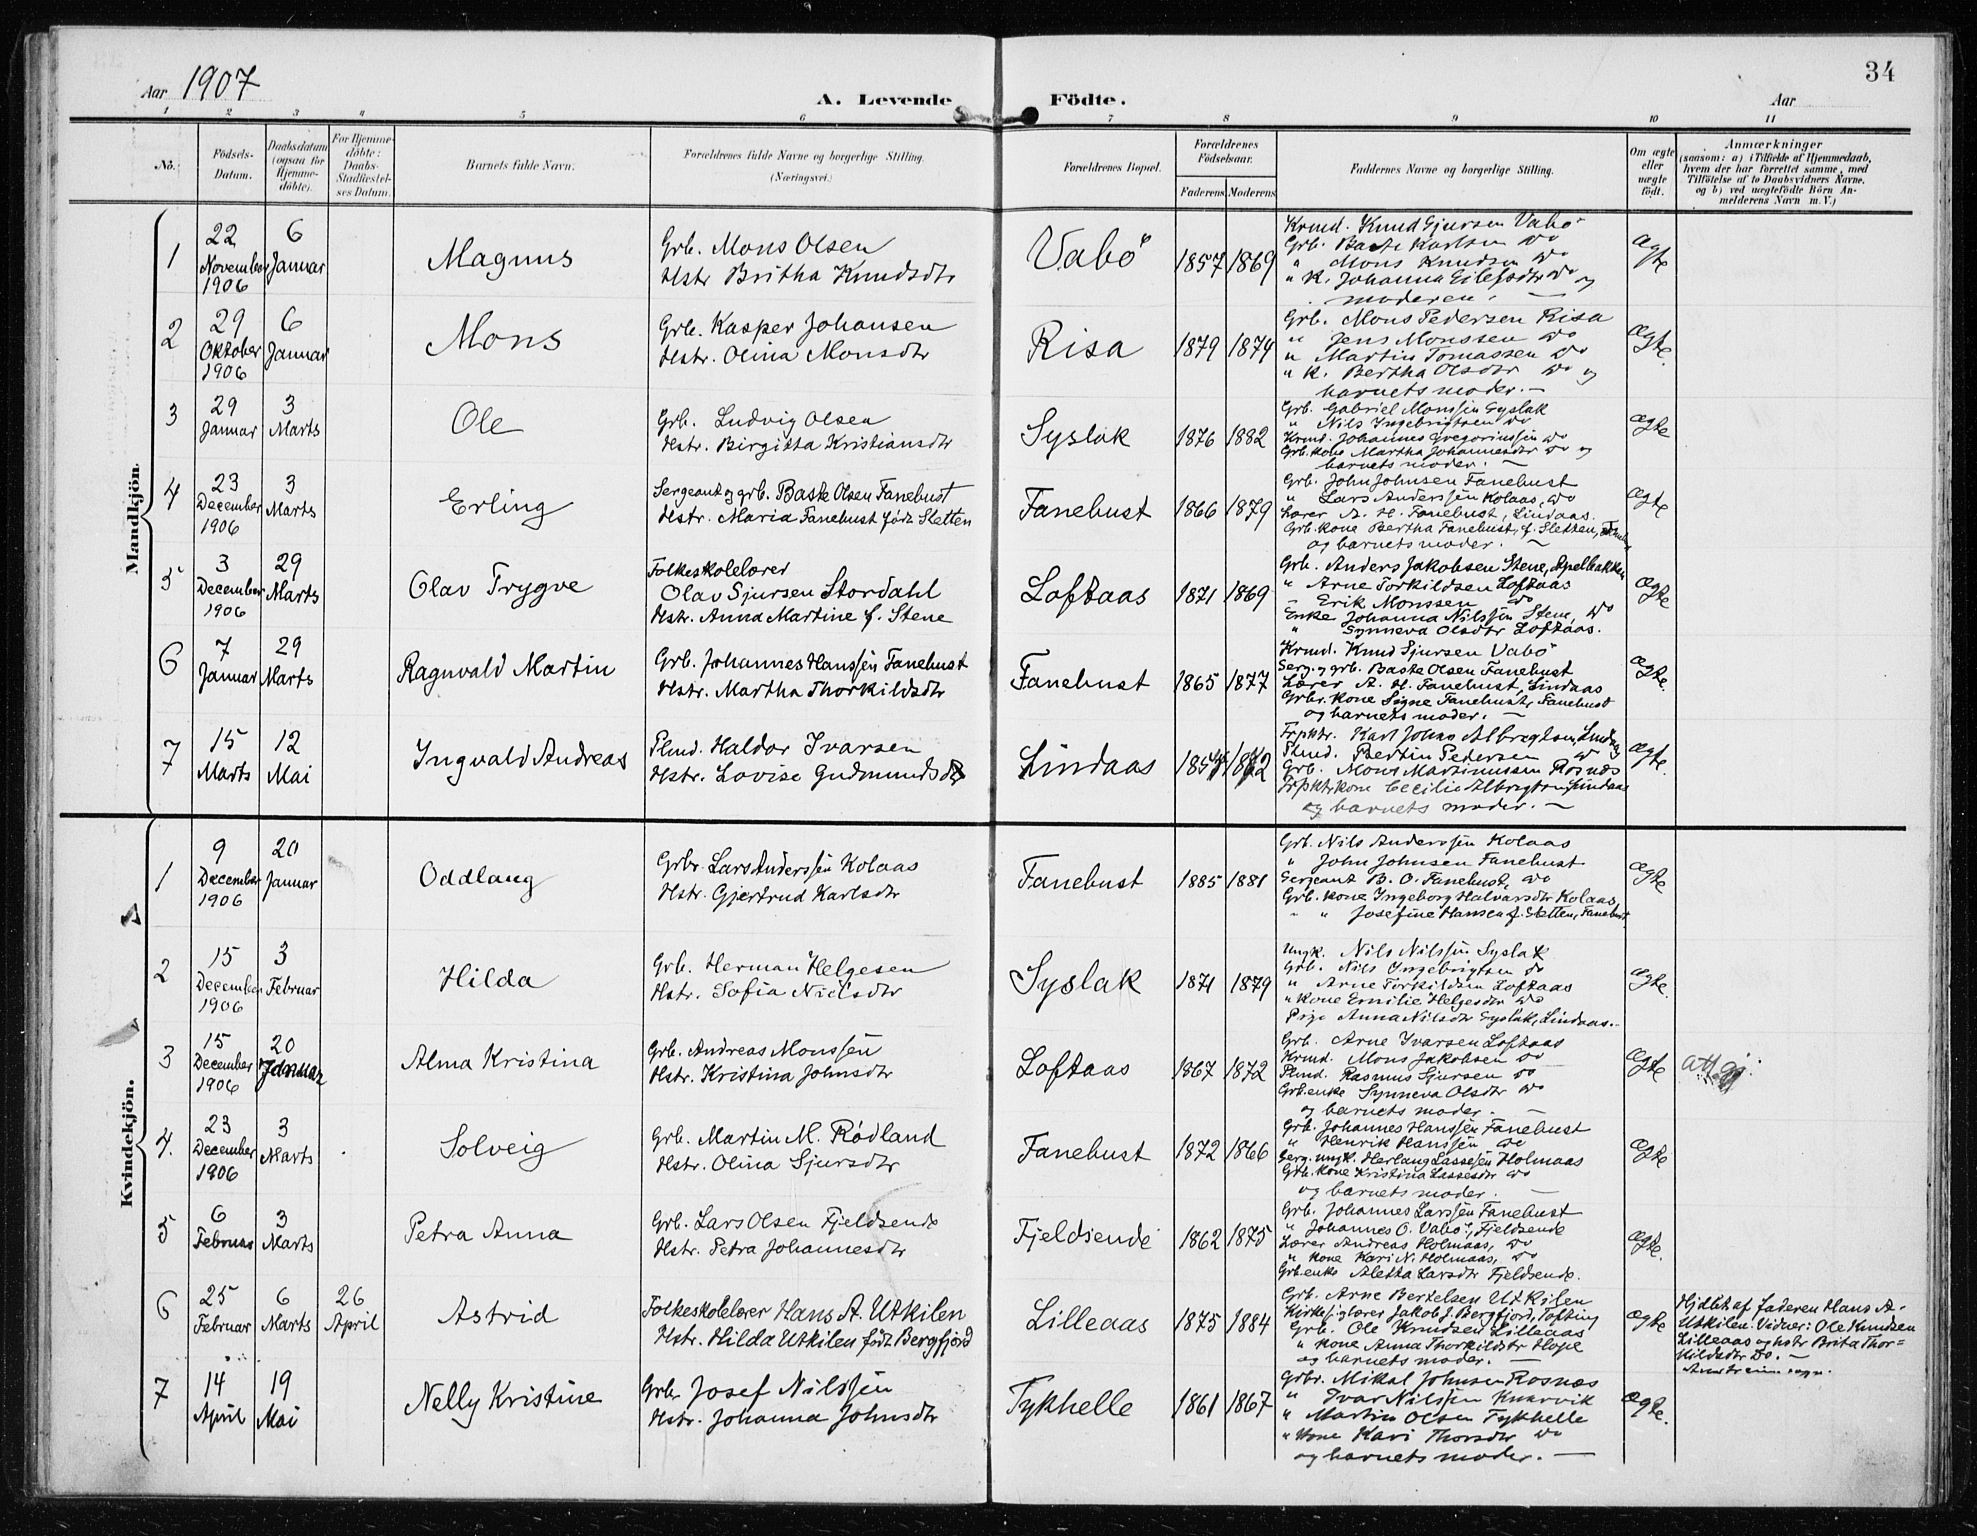 Aar 1907
A. Levende Födte.
Aar
34
1 2 3 4 5 6 7 8 9 10 11
No.
Födsels-
Datum.
Daabsdatum
(ogsaa for
Hjemme-
döbte).
For Hjemme-
döbte:
Daabs-
Stadfæstel-
ses Datum.
Barnets fulde Navn.
Forældrenes fulde Navne og borgerlige Stilling.
(Næringsvei.)
Forældrenes Bopæl.
Forældrenes
Födselsaar.
Faderens Moderens
Faddernes Navne og borgerlige Stilling.
Om ægte
eller
uægte
födt.
Anmærkninger
(saasom: a) i Tilfælde af Hjemmedaab,
hvem der har forrettet samme, med
Tilföielse af to Daabsvidners Navne,
og b) ved uægtefödte Börn An-
melderens Navn m. V.)
Mandkjön.
1
22
November
1906
6
Januar
Magnus
Grb. Mons Olsen
Hstr Britha Knudsdtr
Vabö
1857 1869
Krmd. Knud Sjursen Vabö
Grb. Baste Karlsen do
" Mons Knudsen do
" K. Johanna Eilefsdtr do og
moderen. —
Ægte
2
29
Oktober
1906
6
Januar
Mons
Grb. Kasper Johansen
Hstr. Olina Monsdtr
Risa
1879 1874
Grb. Mons Pedersen Risa
" Jens Monssen do
" Martin Tomassen do
" K. Bertha Olsdtr do og
barnets moder. —
Ægte.
3
29
Januar
3
Marts
Ole
Grb. Ludvig Olsen
Hstr. Birgitta Kristiansdtr
Syslak
1876 1882
Grb. Gabriel Monssen Syslak
" Nils Ingebrigtsen do
Krmd. Johannes Gregoriussen do
Grb. kone Martha Johannesdtr do og
barnets moder. —
Ægte
4
23
December
1906
3
Marts
Erling
Sergeant og grb. Baste Olsen Fanebust
Hstr. Maria Fanebust född Sletten
Fanebust
1866 1879
Grb. John Johnsen Fanebust
" Lars Anderssen Kolaas, do
Lærer A. H. Fanebust, Lindaas.
Grb. kone Bertha Fanebust, f. Sletten, Fanebust
og barnets moder. —
Ægte
5
3
December
1906
29
Marts
Olav Trygve
Folkeskolelærer
Olav Sjursen Stordahl
Hstr. Anna Martine f. Stene
Loftaas
1871 1869
Grb. Anders Jakobsen Stene, Apelbakken
" Arne Torkildsen Loftaas
" Erik Monssen do
Enke Johanna Nilssen Stene, do
" Synneva Olsdtr Loftaas.
Ægte
6
7
Januar
29
Marts
Ragnvald Martin
Grb. Johannes Hanssen Fanebust
Hstr. Martha Thorkildsdtr
Fanebust
1865 1877
Krmd. Knud Sjursen Vabö
Serg. og grb. Baste Olsen Fanebust
Lærer A. H. Fanebust, Lindaas
Grbr. kone Signe Fanebust, Fanebust
og barnets moder. —
Ægte.
7
15
Marts
12
Mai
Ingvald Andreas
Plmd. Haldor Ivarsen
Hstr. Lovise Gudmundsdtr
Lindaas
Frpktr. Karl Johns Albregtsen, Lindaas
Plmd. Bertin Pedersen do
Grb. Mons Martinussen Rosnæs
Frpktrkone Cecilie Albregtsen, Lindaas
og barnets moder. —
Ægte.
Kvindekjön.
1
9
December
1906
20
Januar
Oddlaug
Grbr. Lars Anderssen Kolaas
Hstr. Gjertrud Karlsdtr
Fanebust
1885 1881
Grb. Nils Anderssen Kolaas
" John Johnsen Fanebust
Sergeant B. O. Fanebust, do
Grb. kone Ingeborg Halvarsdtr Kolaas,
" " Josefine Hansen f. Sletten, Fanebust
Ægte
2
15
December
1906
3
Februar
Hilda
Grb. Herman Helgesen
Hstr. Sofia Nielsdtr
Syslak
1871 1879
Ungk. Nils Nilssen Syslak
Grb. Nils Ingebrigtsen do
" Arne Torkildsen Loftaas
" kone Emilie Helgesdtr do
Pige Anna Nilsdtr Syslak, Lindaas.
Ægte.
3
15
December
1906
20
Januar
Alma Kristina
Grb. Andreas Monssen
Hstr. Kristina Johnsdtr
Loftaas
1867 1872
Grb. Arne Ivarsen Loftaas
Krmd. Mons Jakobsen do
Plmd. Rasmus Sjursen do
Grb. enke Synneva Olsdtr do
og barnets moder. —
Ægte
4.
23
December
1906
3
Marts
Solveig
Grb. Martin M. Rödland
Hstr. Olina Sjursdtr
Fanebust
1872 1866
Grb. Johannes Hanssen Fanebust
" Henrik Hanssen do
Serg. ungk. Herlaug Lassesen Holmaas
Grb. kone Kristina Lassesdtr do
og barnets moder. —
Ægte
5
6
Februar
3
Marts
Petra Anna
Grb. Lars Olsen Fjeldsende
Hstr. Petra Johannesdtr
Fjeldsende
1862 1875
Grb. Johannes Larssen Fanebust
" Johannes O. Vabö, Fjeldsende
Lærer Andreas Holmaas, do
" kone Kari N. Holmaas, do
Grb. enke Aletta Larsdtr Fjeldsende.
Ægte.
6
25
Februar
6
Marts
26
April
Astrid
Folkeskolelærer Hans A. Utkilen
Hstr. Hilda Utkilen född Bergfjord
Lilleaas
1875 1884
Grb. Arne Bertelsen Utkilen
Kirkesanger Jakob J. Bergfjord, Tofting
Grb. Ole Knudsen Lilleaas
" kone Anna Thorkildsdtr Hope
og barnets moder. —
Ægte
Hjdbt af faderen Hans A.
Utkilen. Vidner: Ole Knudsen
Lilleaas og hstr Brita Thor-
kildsdtr do. —
Austrheim sogn.
7
14
April
19
Mai
Nelly Kristine
Grb. Josef Nilssen
Hstr. Johanna Johnsdtr
Tykhelle
1861 1867
Grbr. Mikal Johnsen Rosnæs
" Ivar Nilssen Knarvik
" Martin Olsen Tykhelle
" kone Kari Thorsdtr do
og barnets moder. —
Ægte.